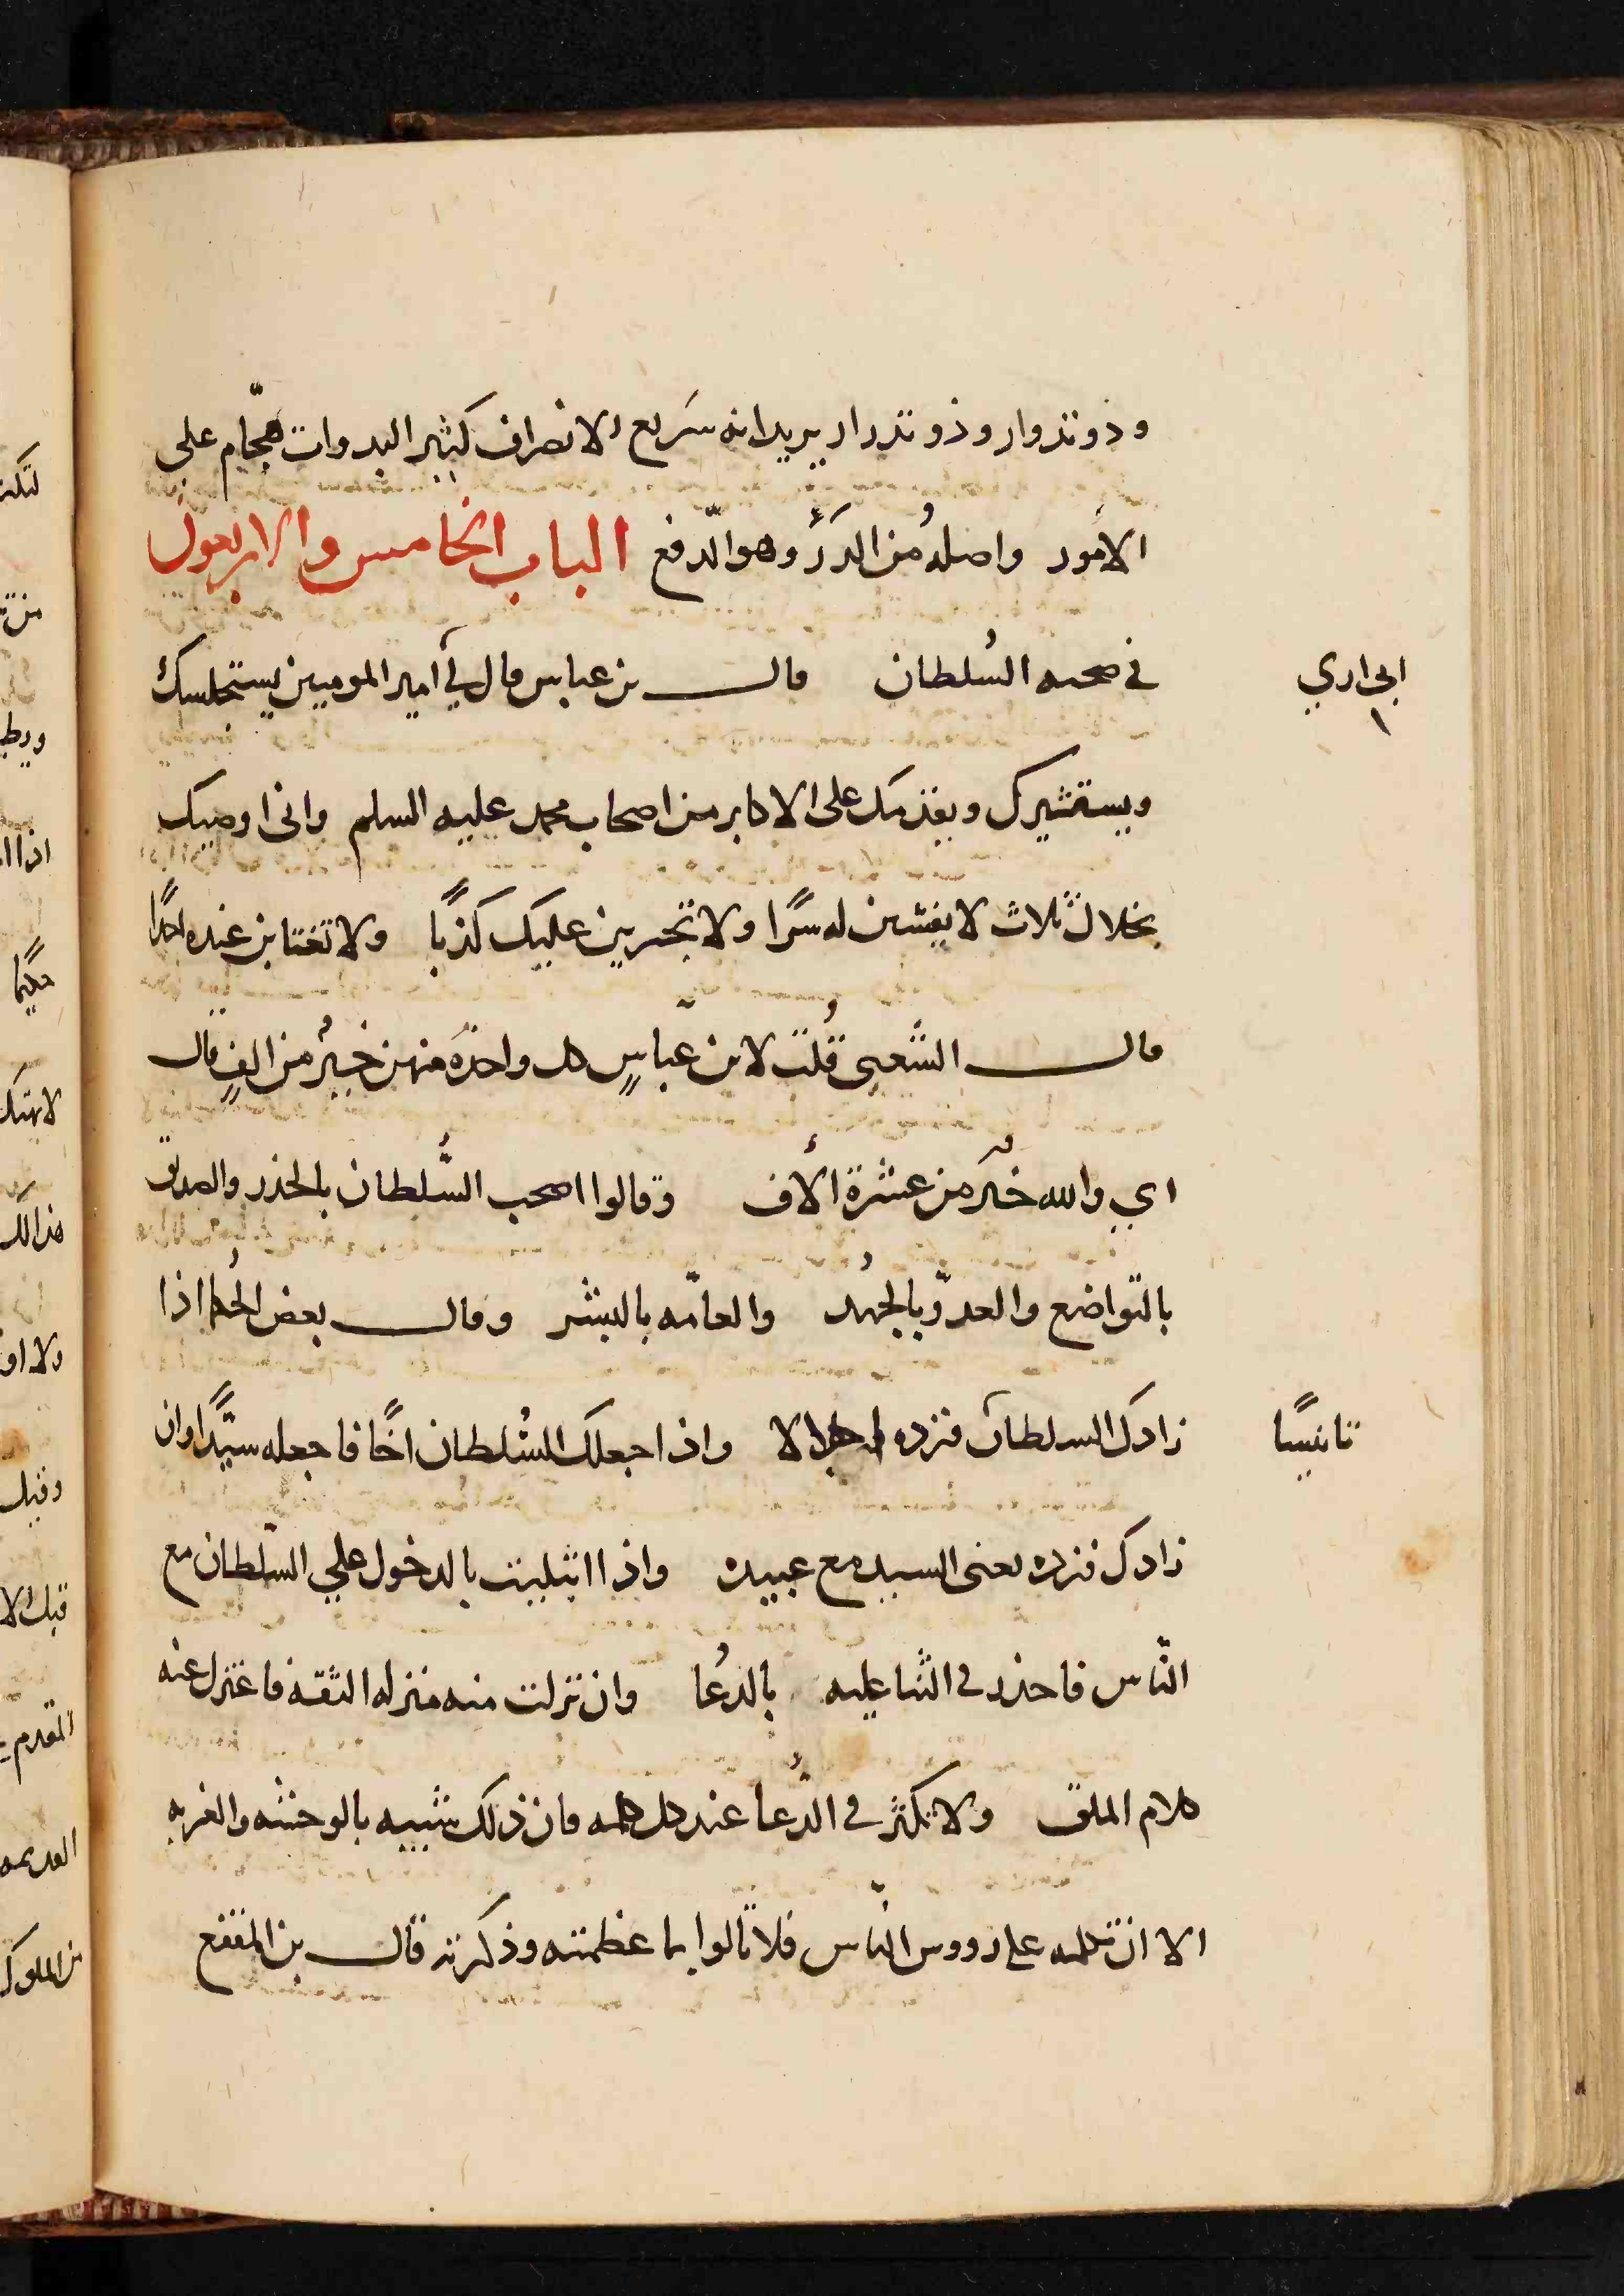 وذو تدوار وذو تدرار يريد انه سريع الانصراف كثير البدوات هجّام على
الامور واصله من الدرء وهو الدّفع الباب الخامس والاربعون
في صحبه السُلطان قال بن عباس قال لي أمير المومنين يستخلسك
اني اري
ويستشيرك ويقدمك على الاكابر من اصحاب محمد عليه السلم واني اوصيك
بخلال ثلاث لا يفشين له سرًا ولا تجرين عليك كذبًا ولا تغتابن عنده احدًا
قال الشعبي قُلت لابن عبّاسٍ كل واحدة منهن خيرٌ من الفٍ قال
اي والله خير من عشرة الآف وقالوا اصحب السُّلطان بالحذر والصديق
بالتواضع والعدوّ بالجُهد والعامّه بالبشر وقال بعض الحُكما اذا
زادك السلطان فزده اجلالا واذا جعلك السُلطان اخًا فاجعله سيّدًا وان
تانيسًا
زادك فزده يعني السيد مع عبيده واذا ابتليت بالدخول علي السّلطان مع
النّاس فاحذر في الثنا عليه بالدُعا وان نزلت منه منزله الثقه فاعتزل عنه
كلام الملق ولا تكثر في الدُّعا عند كل كلمه فان ذلك شبيه بالوحشه والغربه
الا ان تكلمه على رووس النّاس فلا تالوا بما عظمته وذكرته قال بن المقفع